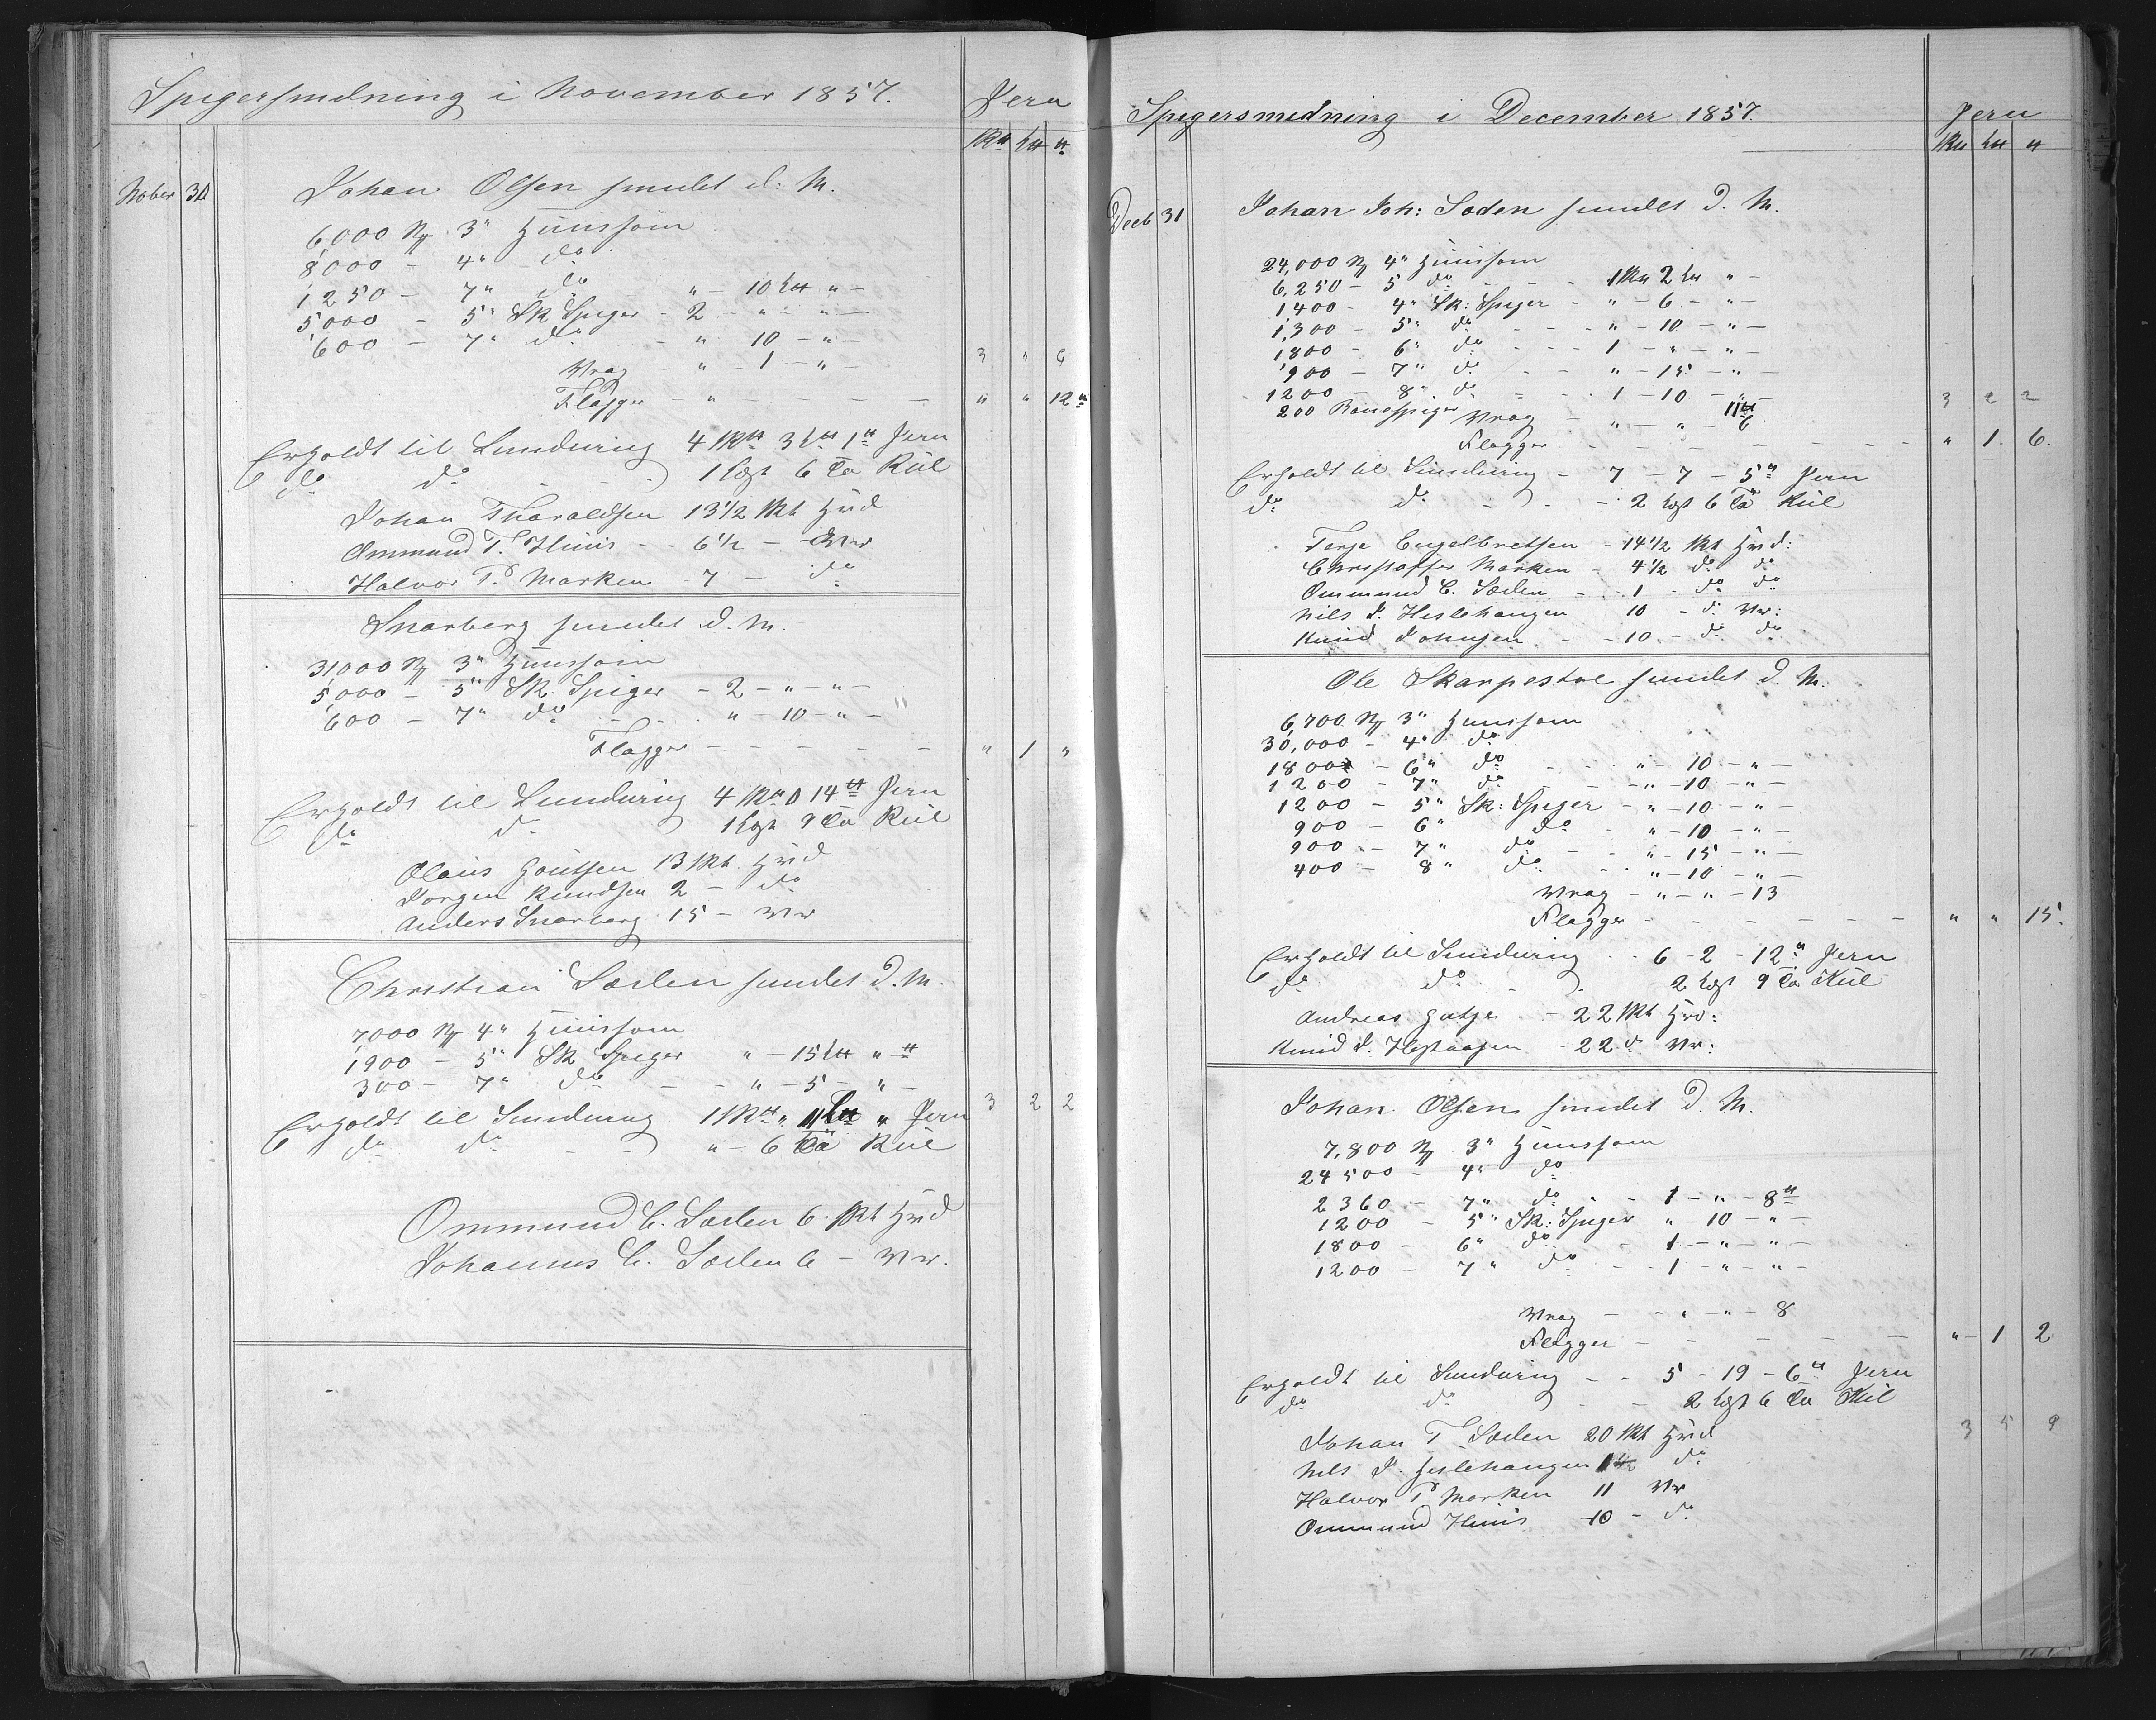 Spigersmedning i November 1857.
Jern
Nober 30
Johan Olsen smedet d: M.
6,000 3" Huussøm
8,000 – 4" do
1,250 – 7" do " – 10 " –
5,000 – 5" Sk Spiger – 2 – " – " –
600 – 7" do – " 10 – " –
Vrag – " – 1 – " –
3 " 6
Flagger – " – – – " " 12
Erholdt til Smedning 4 3 1 Jern
do do 1 6 Kul
Johan Tharaldsen 13 1/2 Hvd
Ommund T. Huus – 6 1/2 – Vw
Halvor P. Marken – 7 – do
Snarberg smedet d. M.
31,000 3" Huussøm
5,000 – 5" Sk. Spiger – 2 – " – " –
600 – 7" do – " – 10 – " –
Flagger – – – – – " 1 "
Erholdt til Smedning 4 0 14 Jern
do do 1 9 Kul
Olaus Goutsen 13 Hvd
Jorgen Knudsen 2 – do
Anders Snarberg 15 – Vw
Christian Sørlen smedet d. M.
7,000 4" Huussøm
1,900 – 5" Sk. Spiger " – 15 "
300 – 7" do – – " – 5 – " –
3 2 2
Erholdt til Smedning 1 " 11 " Jern
do do – – " – 6 Kul
Ommund C. Sørlen 6 Hvd
Johannes C. Sørlen 6 – Vw.
Spigersmedning i December 1857.
Jern
Decb 31
Johan Joh: Soden smedet d. M.
24,000 4" Huussøm
6,250 – 5 do – – 1 2 " –
1400 – 4" Sk: Spiger – " – 6 – " –
1,300 – 5" do – – – " – 10 – " –
1800 – 6" do – – – 1 – " – " –
900 – 7" do – – " – 15 – " –
1200 – 8" do – – 1 – 10 – " –
200 Vrag – " – " – 6
3 2 2
Flagger – – – – – – " 1 6.
Erholdt til Smedning – 7 – 7 – 5 Jern
do do – – 2 6 Kul
Terje Engelbretsen – 14 1/2 Hvd:
Christoffer Marken – 4 1/2 do do
Ommund C. Sørlen – 1 – do do
Nils J. Heslehaugen 10 – do Vw:
Knud Johnsen – – 10 – do do
Ole Skarpestoe smedet d. M.
6,700 3" Huussøm
30,000 – 4" do
1800 – 6" do – – " – 10 – " –
1200 – 7" do – – " – 10 – " –
1200 – 5" Sk: Spiger – " – 10 – " –
900 – 6" do – " – 10 – " –
900 – 7" do – – " – 15 – " –
400 – 8" do – – " – 10 – " –
Vrag – " – " – 13
Flagger – – – – – – " " 15.
Erholdt til Smedning – – 6 – 2 – 12 Jern
do do – – 2 9 Kul
Andreas – 22 Hvd:
Knud J. – 22 do Vw:
Johan Olsen smedet d. M.
7,800 3" Huussøm
24500 – 4" do
2360 – 7" do – – 1 – " – 8
1200 – 5" Sk: Spiger " – 10 – " –
1800 – 6" do – 1 – " – " –
1200 – 7" do – – 1 – " – " –
Vrag – – " – " – 8
Flagger – – – – – " – 1 2
Erholdt til Smedning – – 5 – 19 – 6 Jern
do do – – 2 6 Kul
3 5 9
Johan T. Sørlen 20 Hvd
Nils J. Heslehaugen do
Halvor P Marken 11 Vw
Ommund Huus 10 – do